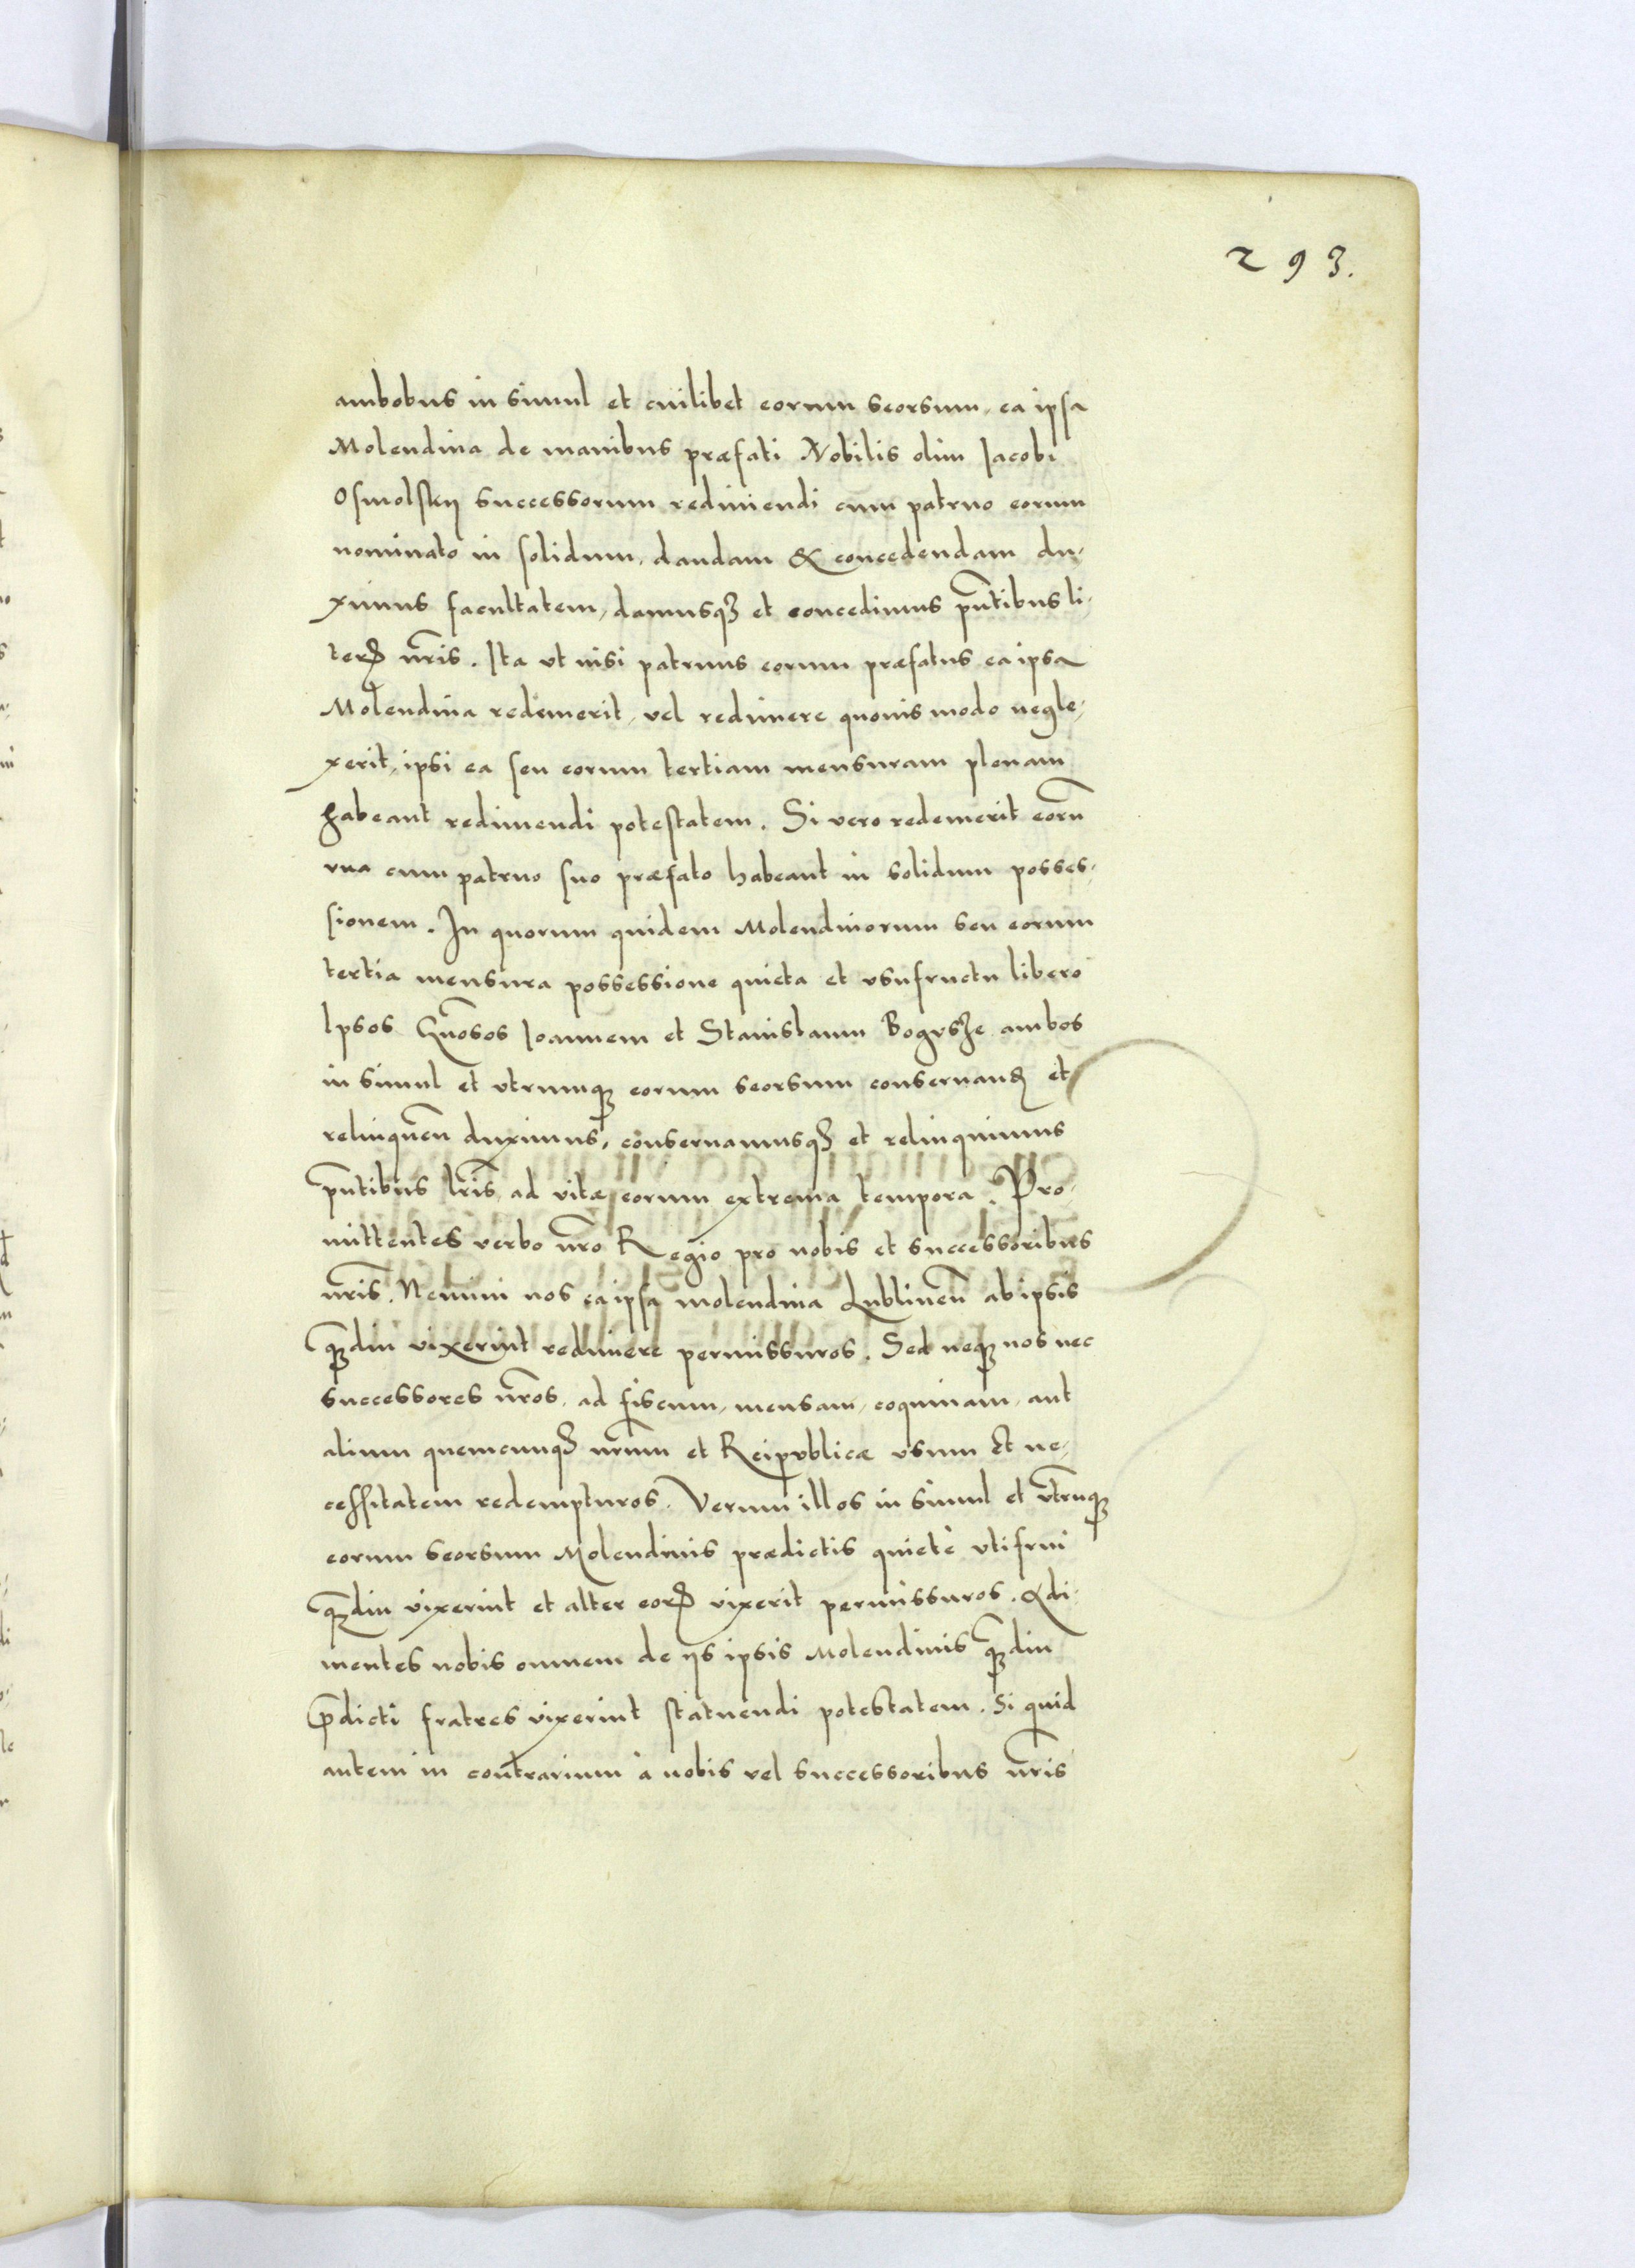 293.
ambobus in simul et cuilibet eorum seorsum, ea ipsa
Molendina de manibus præfati Nobilis olim Jacobi
Osmolskij successorum redimendi cum patruo eorum
nominato in solidum, dandam & concedendam du-
ximus facultatem, damusqȝ et concedimus pñtibus li-
terꝭ nr̃is. Ita vt nisi patruus eorum præfatus ea ipsa
Molendina redemerit, vel redimere quouis modo negle-
xerit, ipsi ea seu eorum tertiam mensuram plenam
habeant redimendi potestatem. Si vero redemerit eorũ
vna cum patruo suo præfato habeant in solidum posses-
sionem. In quorum quidem Molendinorum seu eorum
tertia mensura possessione quieta et vsufructu libero
Ipsos Gñosos Joannem et Stanislaum Bogusze ambos
in simul et vtrumqȝ eorum seorsum conseruanꝺ et
relinqueñ duximus, conseruamusqȝ et relinquimus
pñtibus lr̃is ad vitæ eorum extrema tempora. Pro-
mittentes verbo nr̃o Regio pro nobis et successoribus
nr̃is. Nemini nos ea ipsa molendina Lublineñ ab ipsis
qȝ̃diu vixerint redimere permissuros. Sed neqȝ nos nec
successores nr̃os, ad fiscum, mensam, coquinam, aut
alium quemcunqȝ nr̃um et Reipublicæ vsum et ne-
cessitatem redempturos. Verum illos in simul et vtrũqȝ
eorum seorsum Molendinis prædictis quietè vtifrui
qȝ̃diu vixerint et alter eorꝭ vixerit permissuros. Adi-
mentes nobis omnem de ijs ipsis Molendinis qȝ̃diu
p̃dicti fratres vixerint statuendi potestatem. Si quid
autem in contrarium à nobis vel successoribus nr̃is